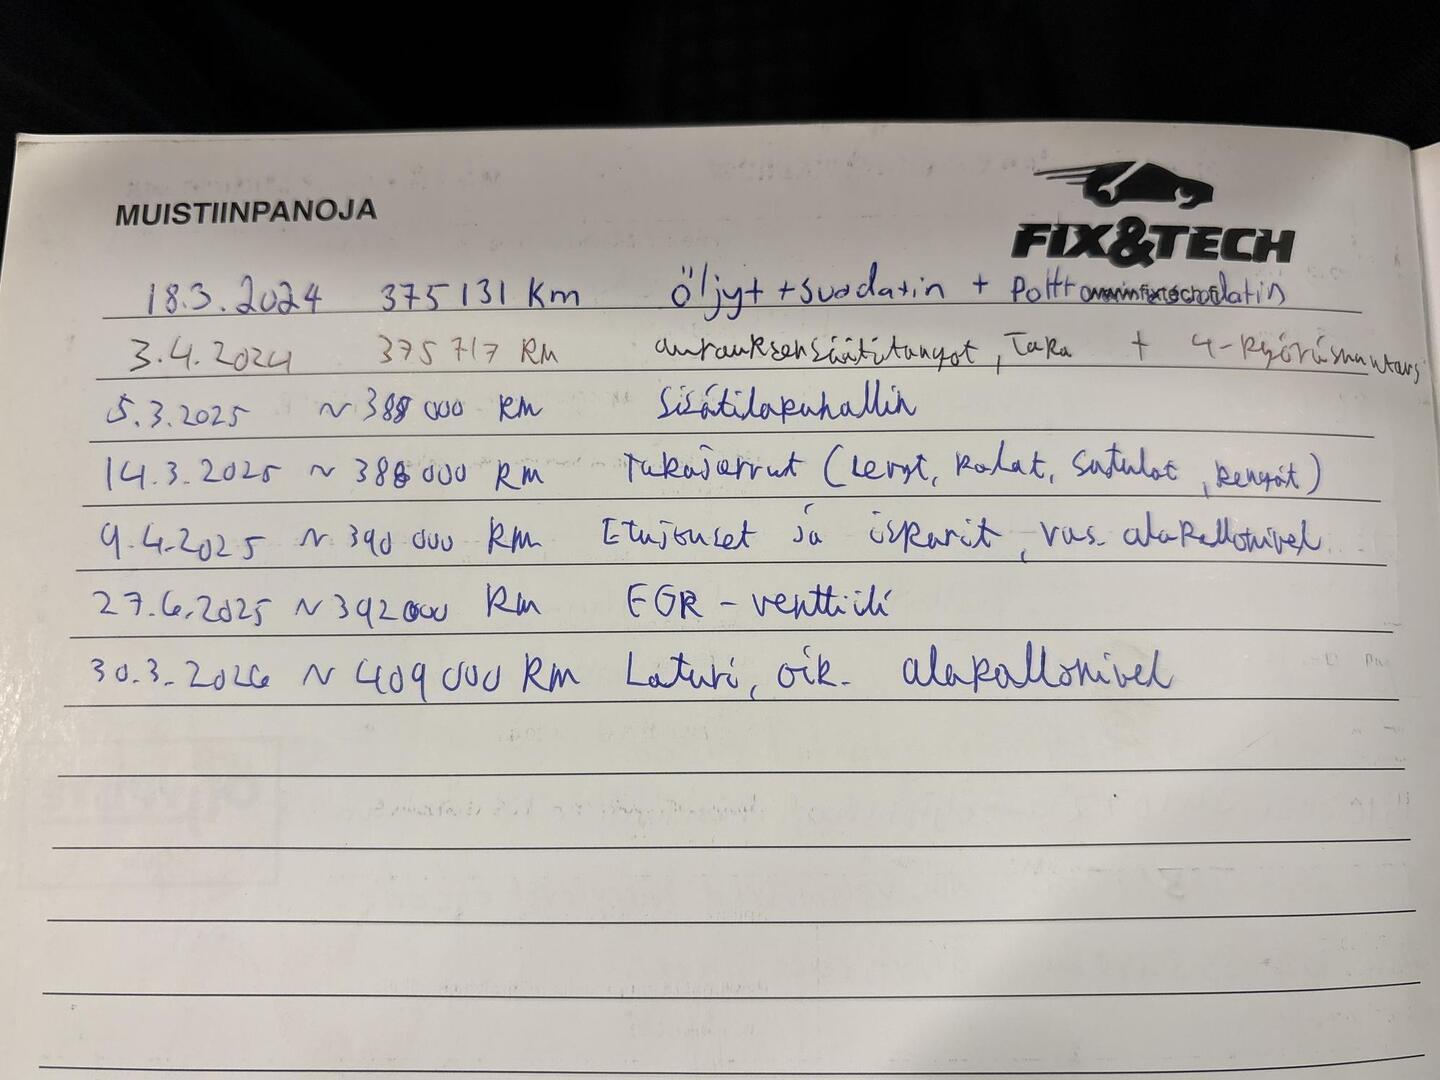 MUISTIINPANOJA
FIX&TECH
18.3.2024 375 131 Km Öljyt + suodatin + Poltt
3.4.2024 375 717 KM aurauksensäätötangot, Taka + 4-Pyöräsuuntaus
5.3.2025 ~ 388 000 KM Sisätilapuhallin
14.3.2025 ~ 388 000 KM Takajarrut (Levyt, Palat, Satulat, Kengät)
9.4.2025 ~ 390 000 KM Etujouset ja iskarit, vas. alapallonivel
27.6.2025 ~ 392 000 KM EGR-venttiili
30.3.2026 ~ 409 000 KM Laturi, oik. alapallonivel